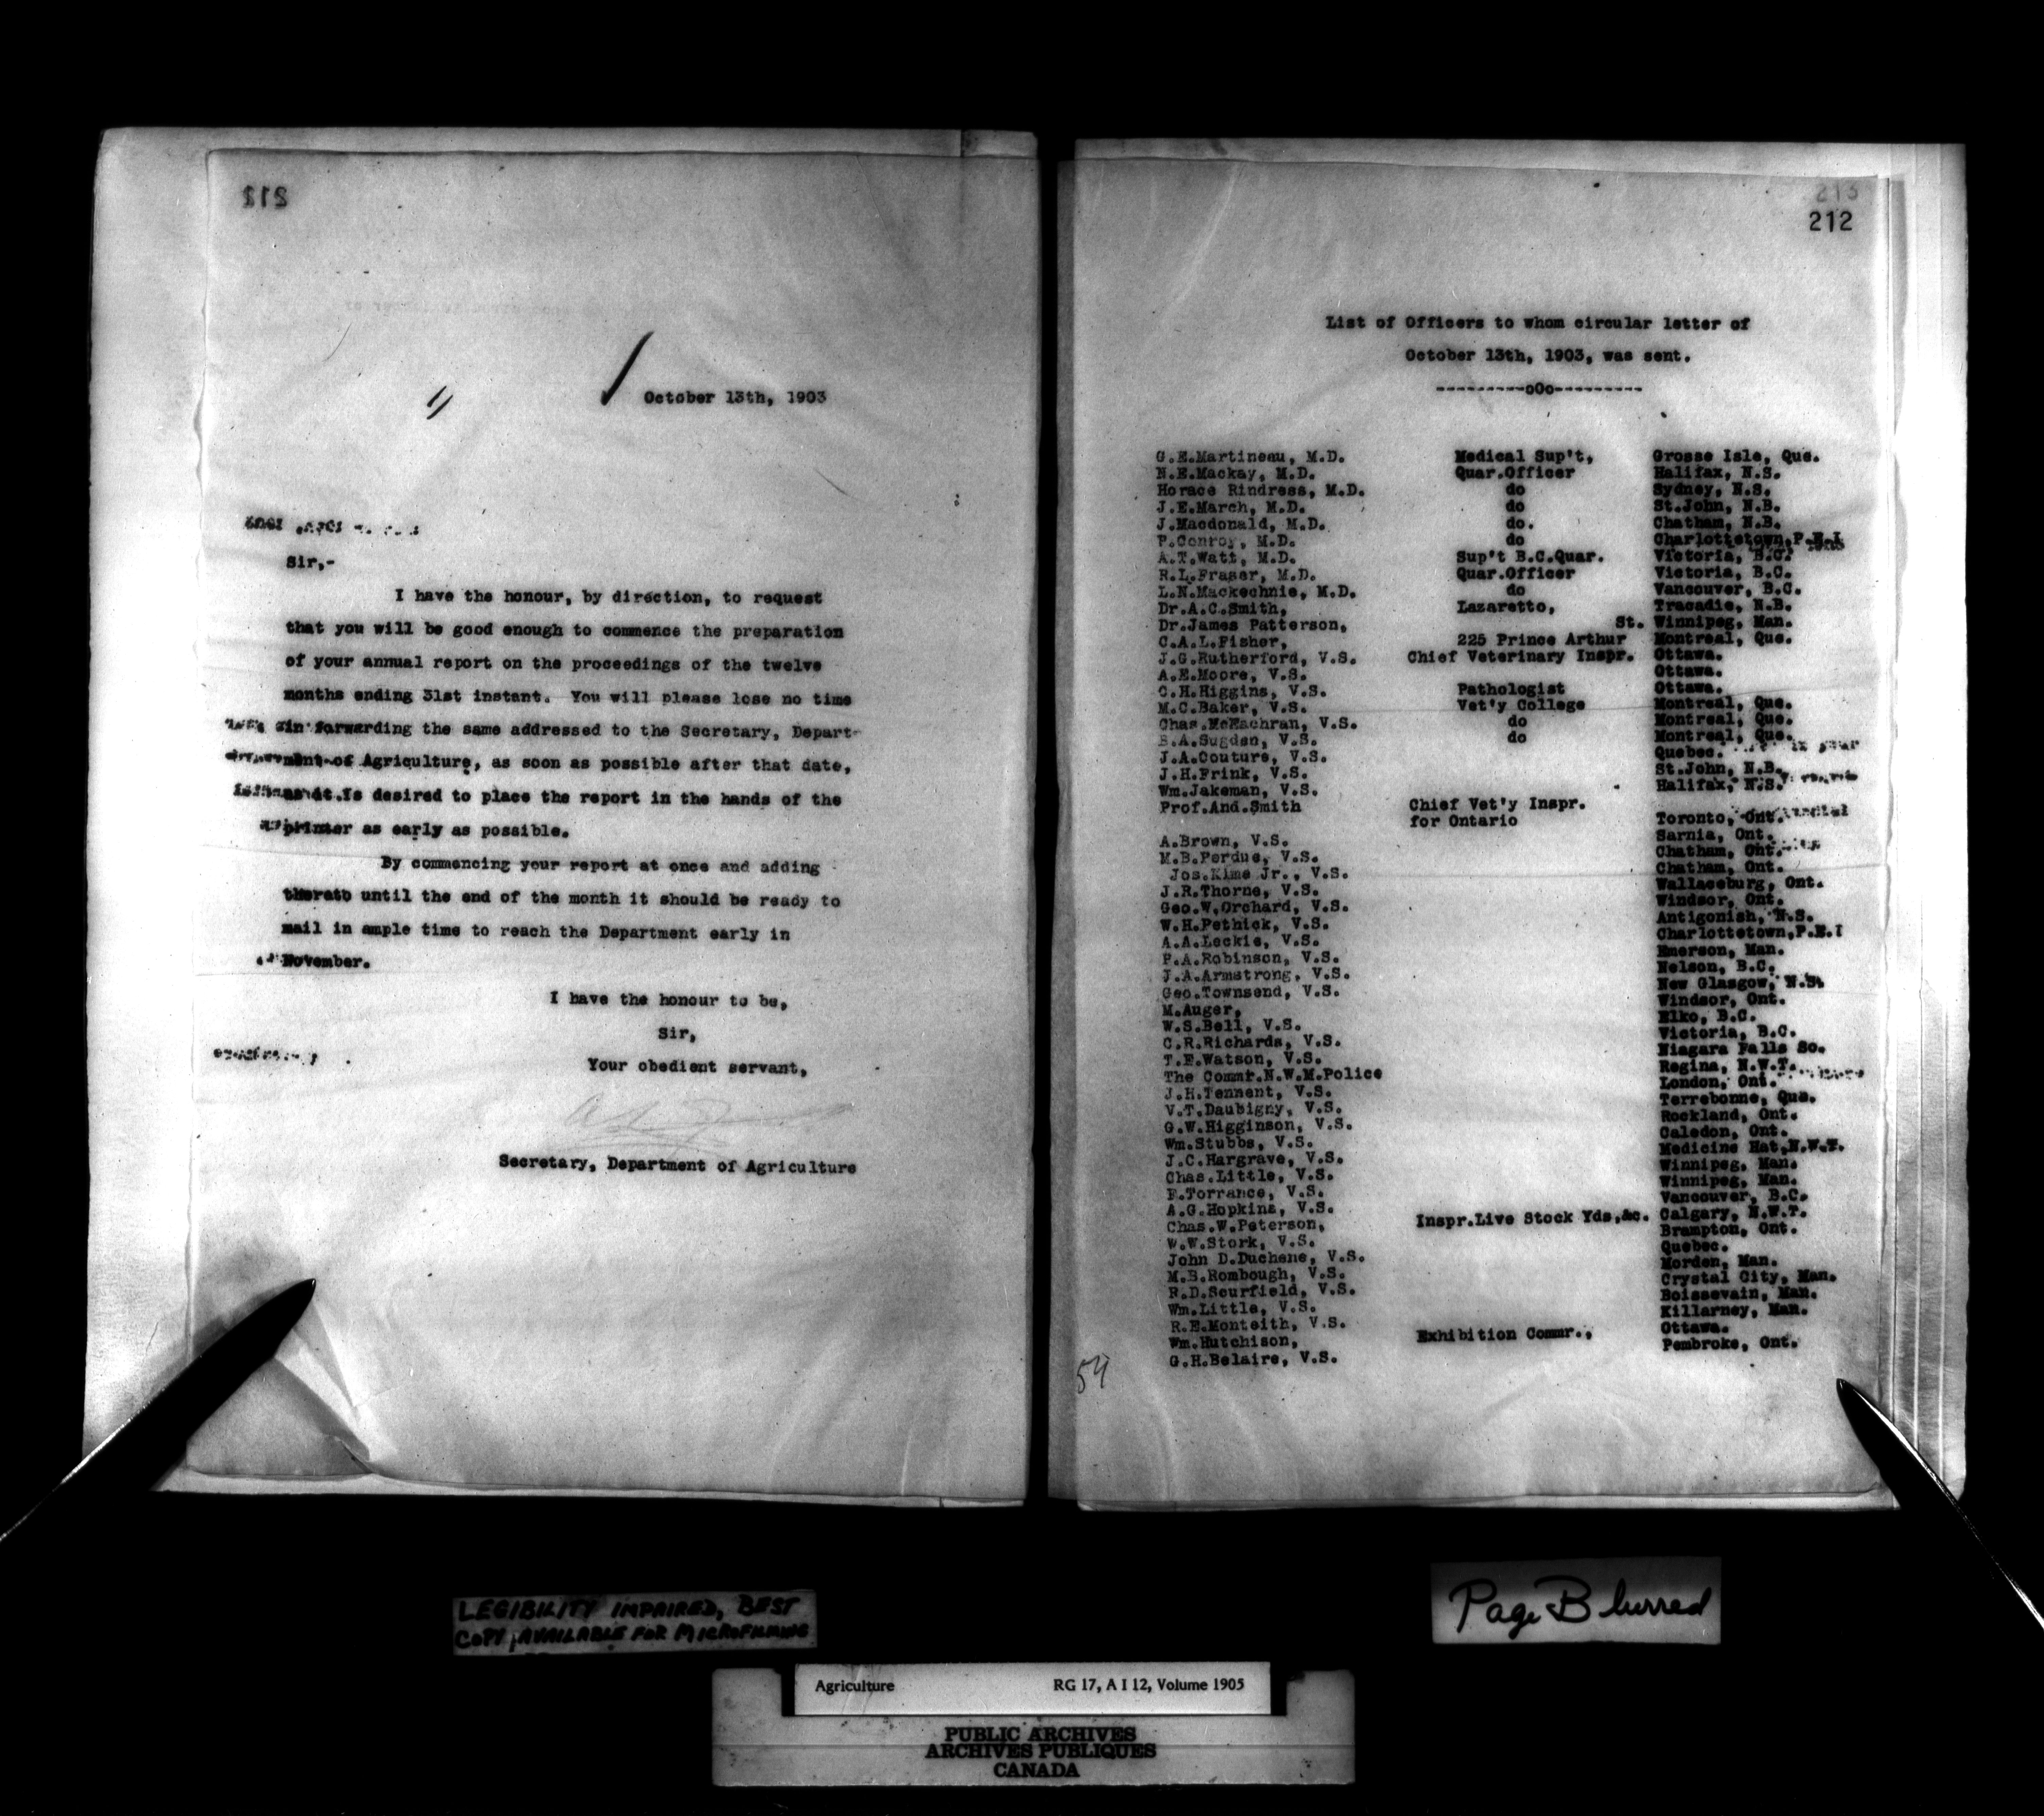 211
October 13th, 1903
Sir,-
I have the honour, by direction, to request
that you will be good enough to commence the preparation
of your annual report on the proceedings of the twelve
months ending 31st instant. You will please lose no time
in forwarding the same addressed to the Secretary, Depart-
ment of Agriculture, as soon as possible after that date,
as it is desired to place the report in the hands of the
printer as early as possible.
By commencing your report at once and adding
thereto until the end of the month it should be ready to
mail in ample time to reach the Department early in
November.
I have the honour to be,
Sir,
Your obedient servant,
Secretary, Department of Agriculture
213
212
List of Officers to whom circular letter of
October 13th, 1903, was sent.
---------oOo---------
G.E.Martineau, M.D. Medical Sup't, Grosse Isle, Que.
N.E.Mackay, M.D. Quar.Officer Halifax, N.S.
Horace Rindress, M.D. do Sydney, N.S.
J.E.March, M.D. do St.John, N.B.
J.Macdonald, M.D. do. Chatham, N.B.
P.Conroy, M.D. do Charlottetown,P.E.I
A.T.Watt, M.D. Sup't B.C.Quar. Victoria, B.C.
R.L.Fraser, M.D. Quar.Officer Victoria, B.C.
L.N.Mackechnie, M.D. do Vancouver, B.C.
Dr.A.C.Smith, Lazaretto, Tracadie, N.B.
Dr.James Patterson, St. Winnipeg, Man.
C.A.L.Fisher, 225 Prince Arthur Montreal, Que.
J.G.Rutherford, V.S. Chief Veterinary Inspr. Ottawa.
A.E.Moore, V.S. Ottawa.
C.H.Higgins, V.S. Pathologist Ottawa.
M.C.Baker, V.S. Vet'y College Montreal, Que.
Chas.McEachran, V.S. do Montreal, Que.
B.A.Sugden, V.S. do Montreal, Que.
J.A.Couture, V.S. Quebec.
J.H.Frink, V.S. St.John, N.B.
Wm.Jakeman, V.S. Halifax, N.S.
Prof.And.Smith Chief Vet'y Inspr.
for Ontario Toronto, Ont.
A.Brown, V.S. Sarnia, Ont.
M.B.Perdue, V.S. Chatham, Ont.
Jos.Kime Jr., V.S. Chatham, Ont.
J.R.Thorne, V.S. Wallaceburg, Ont.
Geo.W.Orchard, V.S. Windsor, Ont.
W.H.Pethick, V.S. Antigonish, N.S.
A.A.Leckie, V.S. Charlottetown,P.E.I
P.A.Robinson, V.S. Emerson, Man.
J.A.Armstrong, V.S. Nelson, B.C.
Geo.Townsend, V.S. New Glasgow, N.S.
M.Auger, Windsor, Ont.
W.S.Bell, V.S. Elko, B.C.
C.R.Richards, V.S. Victoria, B.C.
T.E.Watson, V.S. Niagara Falls So.
The Commr.N.W.M.Police Regina, N.W.T.
J.H.Tennent, V.S. London, Ont.
V.T.Daubigny, V.S. Terrebonne, Que.
G.W.Higginson, V.S. Rockland, Ont.
Wm.Stubbs, V.S. Caledon, Ont.
J.C.Hargrave, V.S. Medicine Hat,N.W.T.
Chas.Little, V.S. Winnipeg, Man.
F.Torrance, V.S. Winnipeg, Man.
A.G.Hopkins, V.S. Vancouver, B.C.
Chas.W.Peterson, Inspr.Live Stock Yds,&c. Calgary, N.W.T.
W.W.Stork, V.S. Brampton, Ont.
John D.Duchene, V.S. Quebec.
M.B.Rombough, V.S. Morden, Man.
R.D.Scurfield, V.S. Crystal City, Man.
Wm.Little, V.S. Boissevain, Man.
R.E.Monteith, V.S. Killarney, Man.
Wm.Hutchison, Exhibition Commr., Ottawa.
G.H.Belaire, V.S. Pembroke, Ont.
54
LEGIBILITY IMPAIRED, BEST
COPY AVAILABLE FOR MICROFILMING
Page Blurred
Agriculture RG 17, A I 12, Volume 1905
PUBLIC ARCHIVES
ARCHIVES PUBLIQUES
CANADA